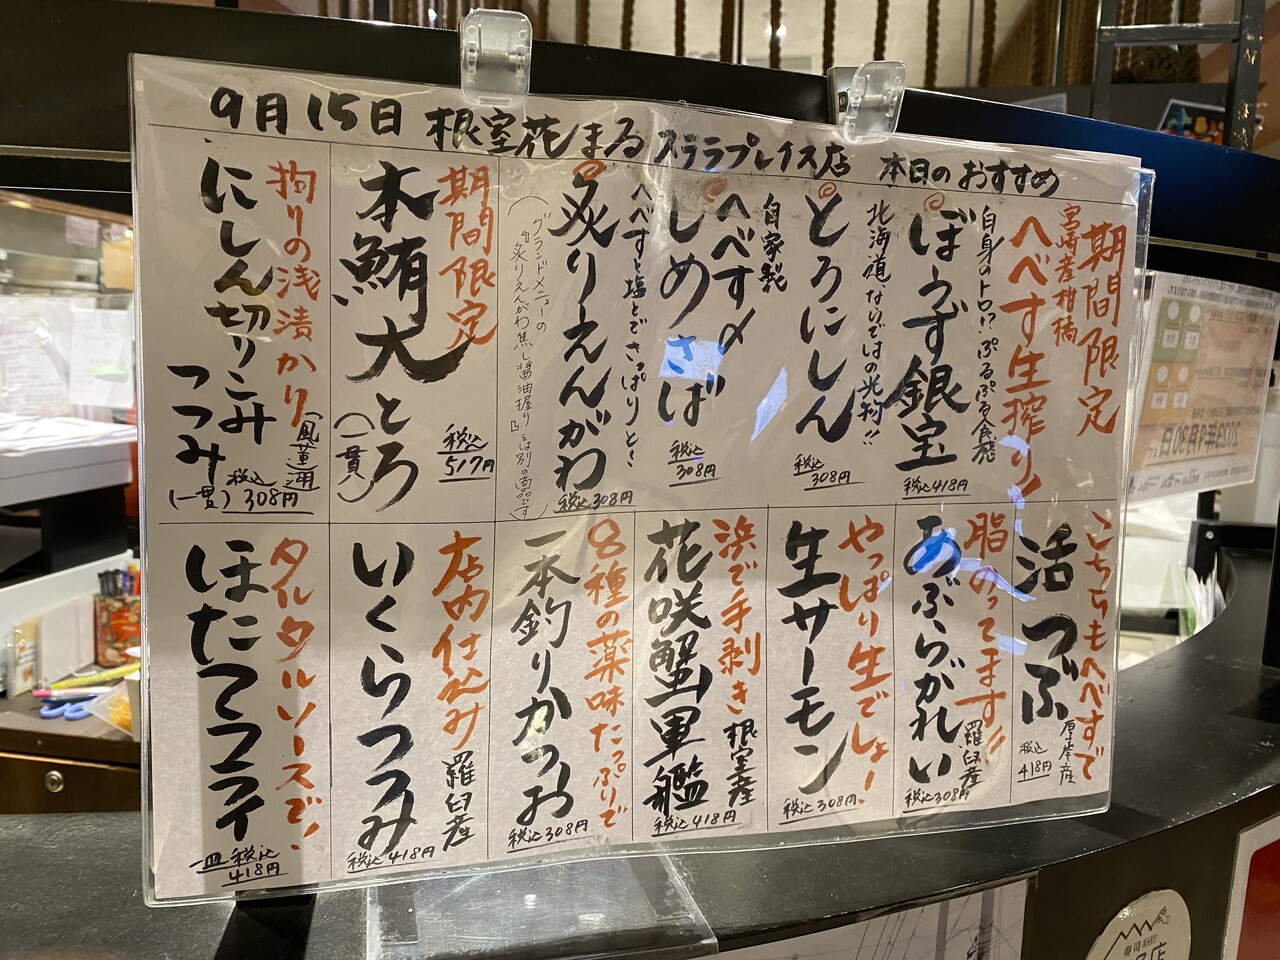 9月15日 根室花まる ステラプレイス店 本日のおすすめ
期間限定
宮崎産柑橘
へべす生搾り!
白身のトロ!?ぷるぷる食感
ぼうず銀宝
税込418円
北海道ならではの光物!!
とろにしん
税込
308円
自家製
へべす〆
しめさば
税込
308円
へべすと塩とでさっぱりと…
炙りえんがわ
(グランドメニューの
『炙りえんがわ焦し醤油握り』とは別の商品です)
税込308円
期間限定
本鮪大とろ
(一貫)
税込
517円
拘りの浅漬かり
(風蓮湖)
にしん切りこみ
つつみ
(一貫)
税込
308円
こちらもへべすで
活つぶ
厚岸産
税込
418円
脂のってます!!
羅臼産
あぶらがれい
税込308円
やっぱり生でしょー!
生サーモン
税込308円
浜で手剥き
根室産
花咲蟹軍艦
税込418円
8種の薬味たっぷりで
一本釣りかつお
税込308円
店内仕込み
羅臼産
いくらつつみ
税込418円
タルタルソースで!
ほたてフライ
一皿 税込
418円
2023年9月30日
寿司